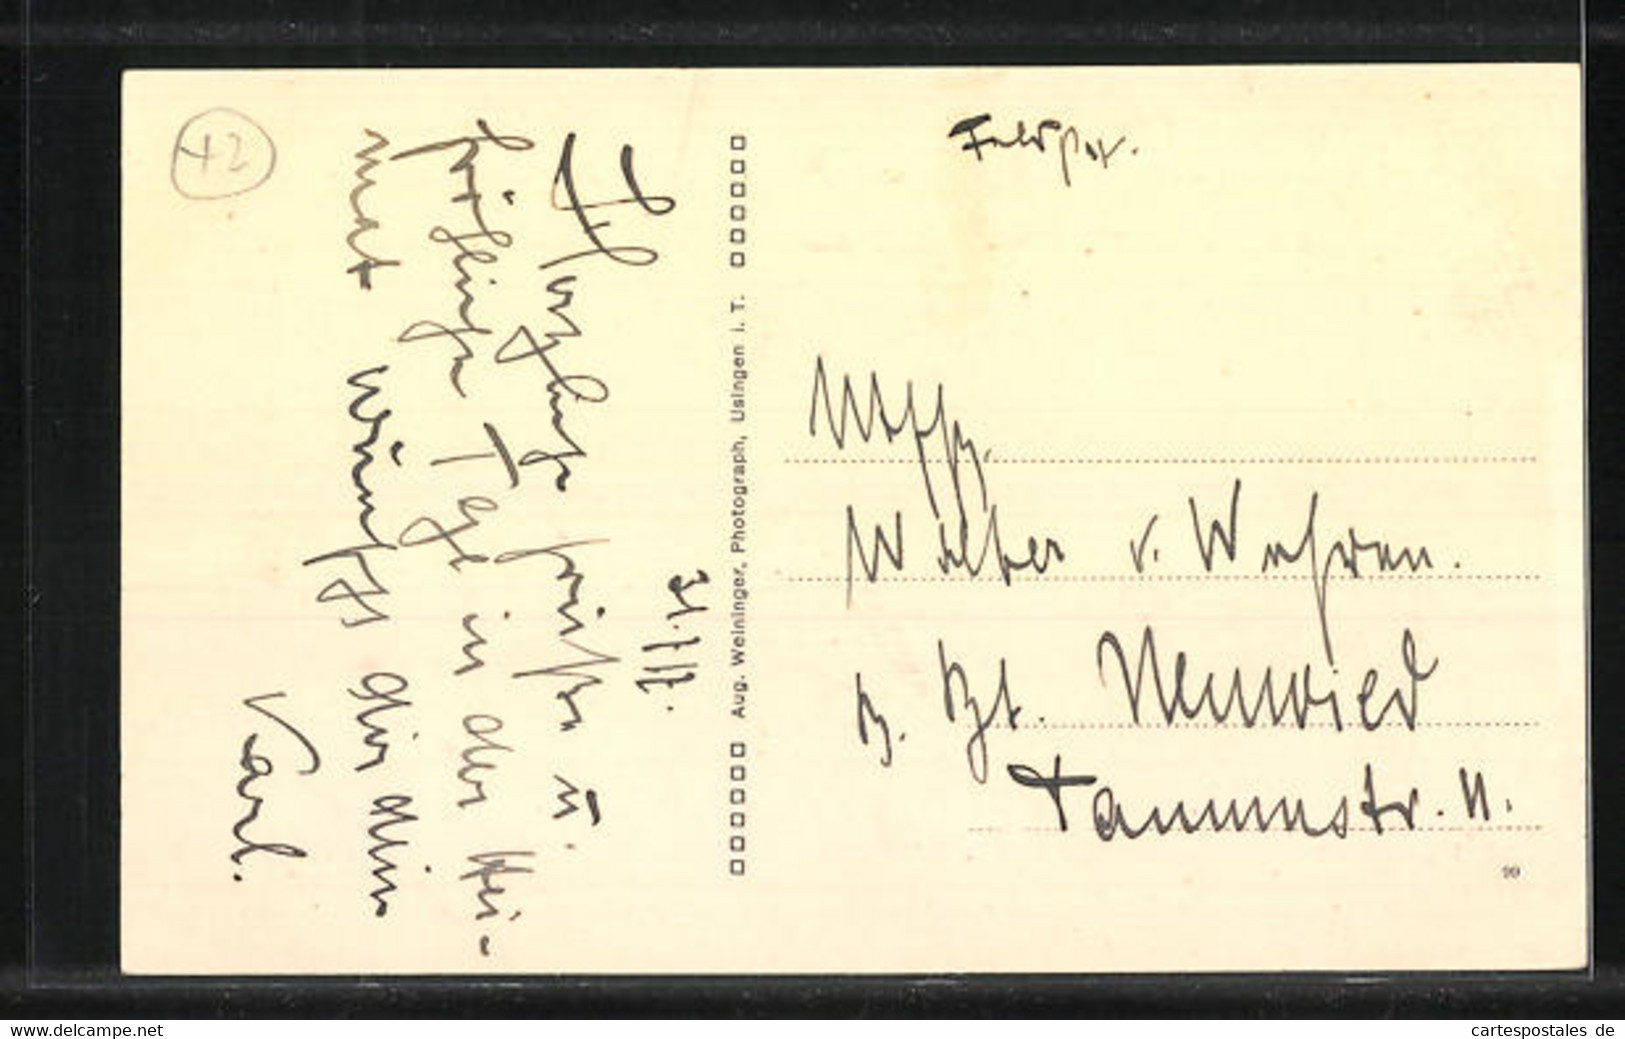 42
31.7.17.
Herzliche Grüße u.
fröhliche Tage in der Hei-
mat wünscht dir dein
Karl.
Aug. Weininger, Photograph, Usingen i. T.
Feldpost.
Walter v. Wehren.
z. Zt. Neuwied
Taunusstr. 11.
99
www.delcampe.net
cartespostales de